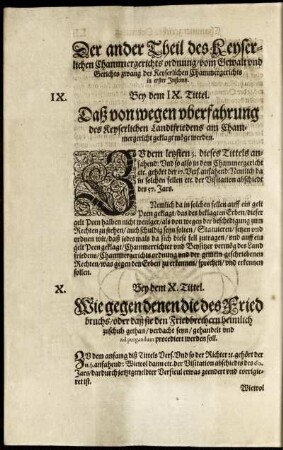 Der ander Theil des Keyser-
lichen Chammergerichts ordnung / vom Gewalt vnd
Gerichts zwang des Keyserlichen Chammergerichts
in erster Instantz.
IX. Bey dem IX. Tittel.
Daß von wegen vberfahrung
des Keyserlichen Landtfriedens am Cham-
mergericht geklagt möge werden.
dem letzsten §. dieses Tittels an-
fahend: Vnd so also in dem Chammergericht
etc. gehört der Vers. anfahend: Nemlich da
in solchen fellen etc. der Visitation abschiedt
des 57. Jars.
Nemlich da in solchen fellen auff ein gelt
Poen geklagt / das der beklagten Erben / dieser
gelt Poen halben nicht weniger / als von wegen der beschedigung zum
Rechten zustehen / auch schuldig seyn sollen / Statuieren / setzen vnd
ordnen wir / daß jedes mals da sich diese fell zutragen / vnd auff ein
gelt Poen geklagt / Chammerrichter vnd Beysitzer vermög des Land
friedens / Chammergerichts ordnung vnd der gemein geschriebenen
Rechten / was gegen den Erben zu erkennen / sprechen / vnd erkennen
sollen.
X. Bey dem X. Tittel.
Wie gegen denen die des Fried
bruchs / oder daß sie den Friedbrechern heimlich
zuschub gethan / verdacht seyn / gehandelt vnd
ad purgandum procediert werden soll.
ZV dem anfang diß Tittels Vers. Vnd so der Richter etc. gehört der
anfahend: Wiewol dann etc. der Visitation abschiedts des
Jars / dardurch jetztgemeldter Versicul etwas geendert vnd corrigie-
ret ist.
Wiewol